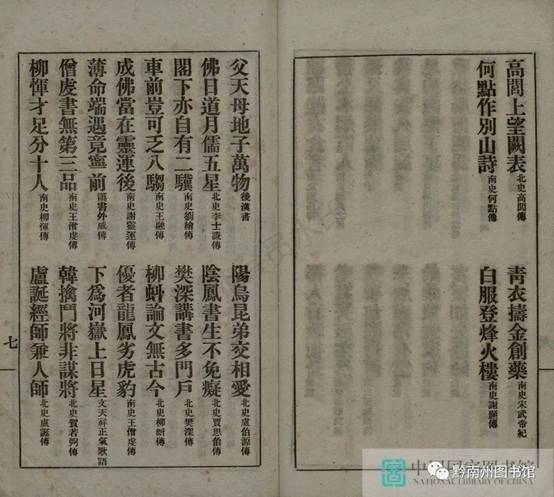 高閭上望闕表 北史高閭傳 青衣擣金創藥 南史宋武帝紀
何點作別山詩 南史何點傳 白服登烽火樓 南史謝顥傳
父天母地子萬物 後漢書 陽烏昆弟交相愛 北史盧伯源傳
佛日道月儒五星 北史李士謙傳 陰鳳書生不免癡 北史賈思伯傳
閣下亦自有二驥 南史劉繪傳 樊深講書多門戶 北史樊深傳
車前豈可乏八騶 南史王融傳 柳蚪論文無古今 北史柳蚪傳
成佛當在靈運後 南史謝靈運傳 優者龍鳳劣虎豹 南史王僧虔傳
薄命端遇竟寧前 漢書外戚傳 下為河嶽上日星 文天祥正氣歌語
僧虔書無第三品 南史王僧虔傳 韓擒鬥將非謀將 北史賀若弼傳
柳惲才足分十人 南史柳惲傳 盧誕經師兼人師 北史盧誕傳
七
中国国家图书馆
NATIONAL LIBRARY OF CHINA
黔南州图书馆